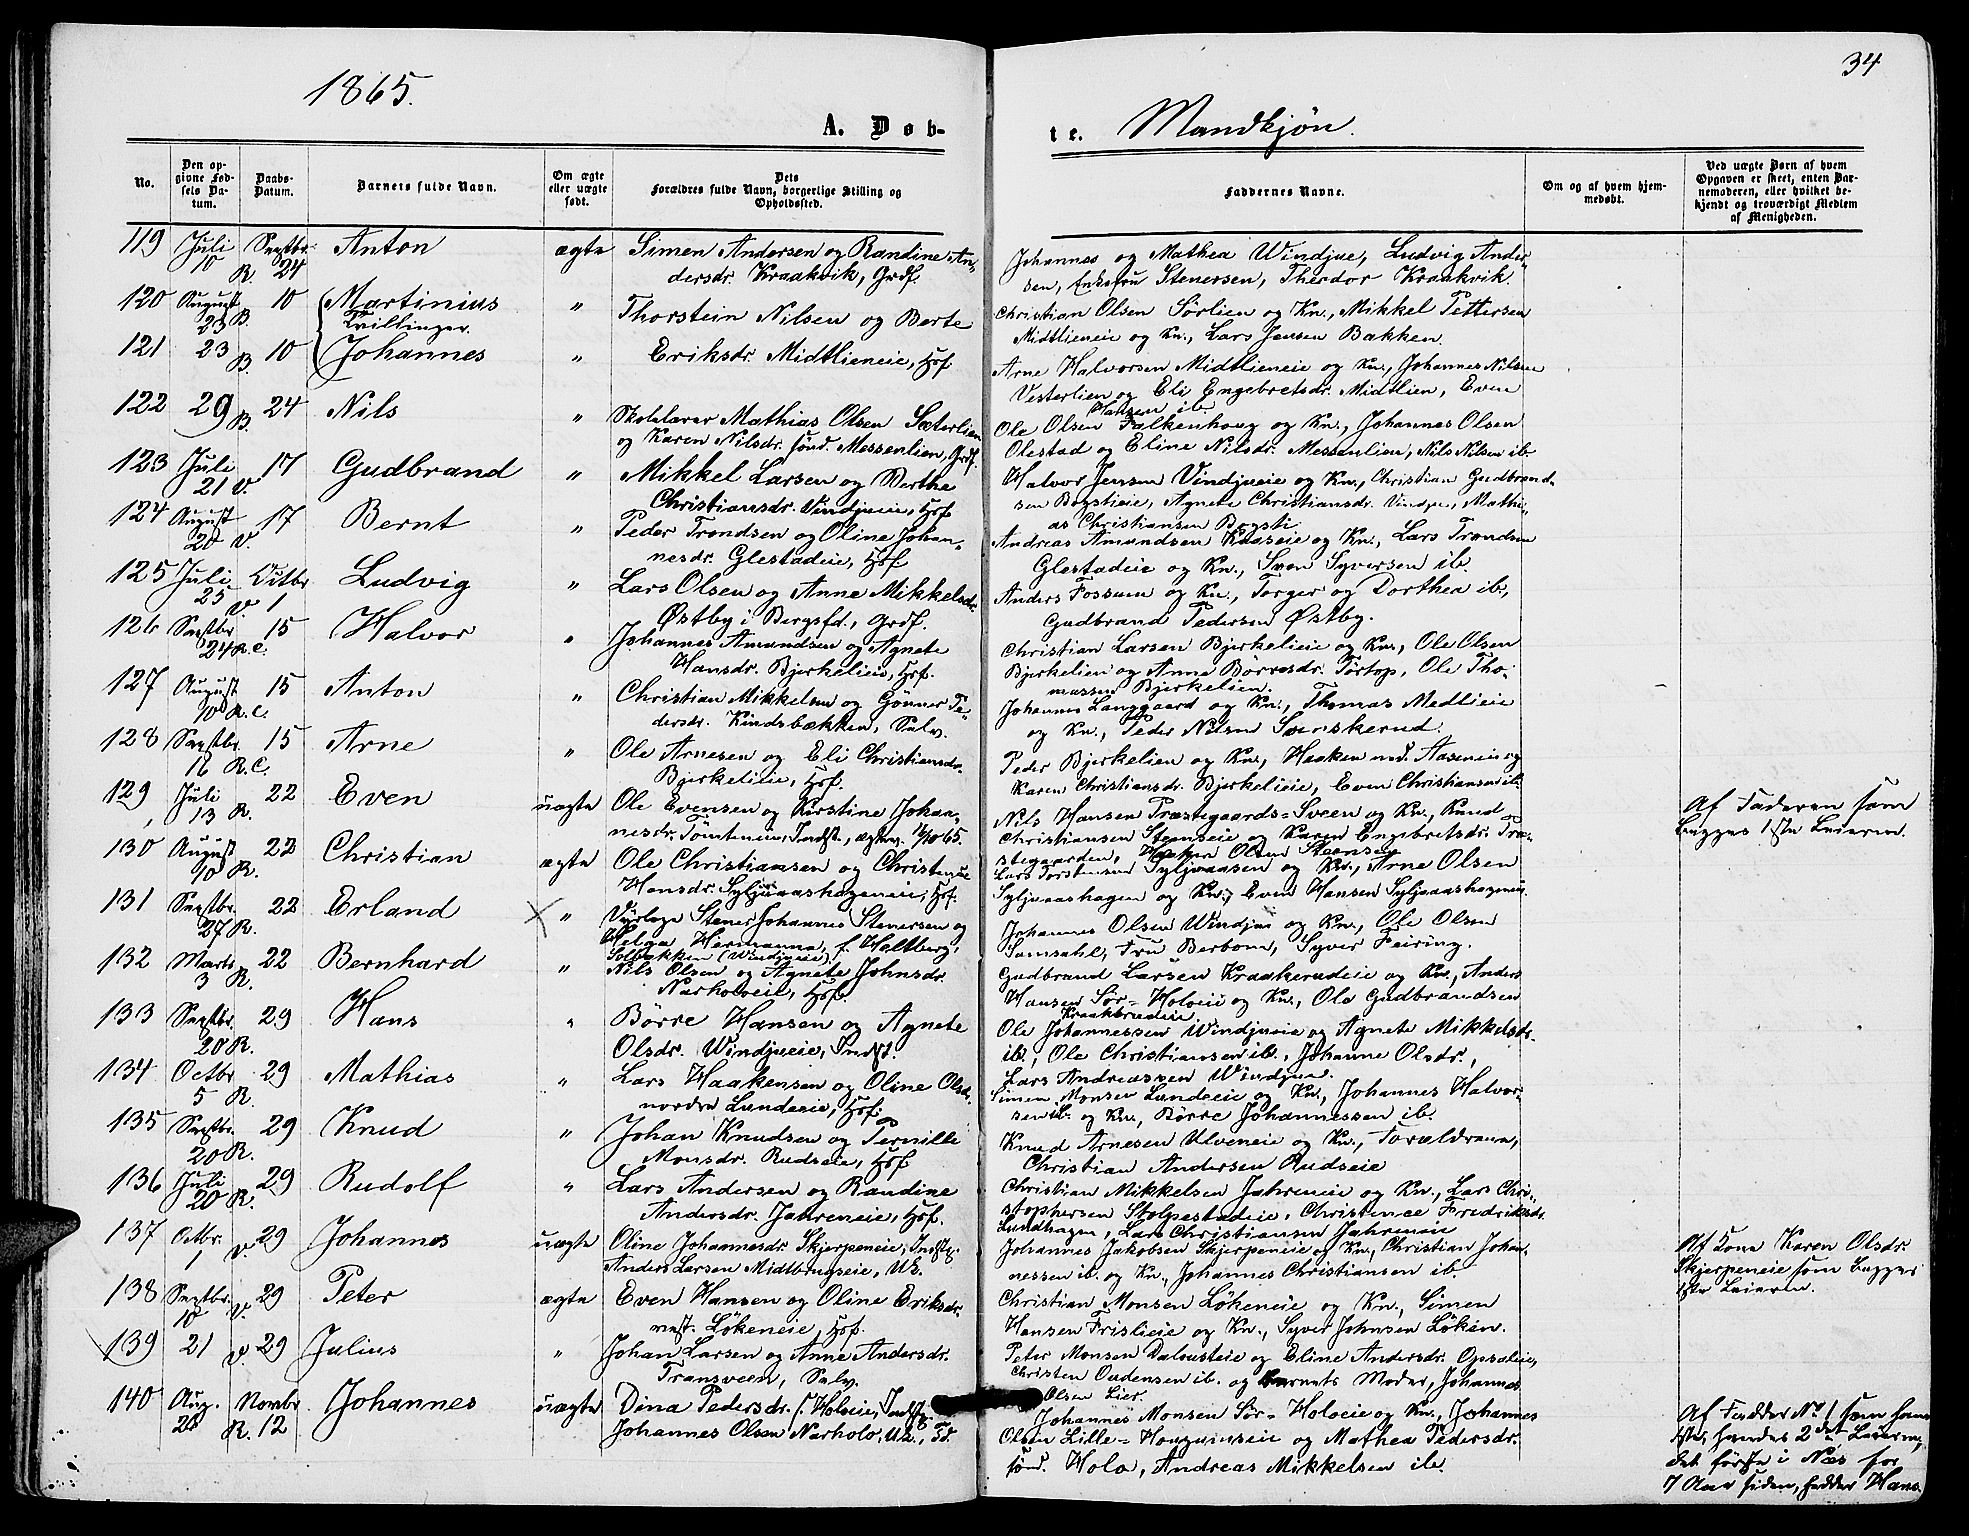 1865.
34
A. Døb-
te. Mandkjøn.
No.
Den op-
givne Fød-
sels Da-
tum.
Daabs-
Datum.
Barnets fulde Navn.
Om ægte
eller uægte
født.
Dets
Forældres fulde Navn, borgerlige Stilling og
Opholdssted.
Faddernes Navne.
Om og af hvem hjem-
medøbt.
Ved uægte Børn af hvem
Opgaven er skeet, enten Bar-
nemoderen, eller hvilket be-
kjendt og troværdigt Medlem
af Menigheden.
119 Juli Septbr. Anton ægte Simen Andersen og Randine An-
10 R. 24 dersdr. Kraakvik, Grdf.
Johannes og Mathea Windjue, Ludvig Ander-
sen, Enkefru Stenersen, Theodor Kraakvik.
120 August 10 Martinius " Thorstein Nilsen og Berte
23 B. Tvillinger.
Christian Olsen Sørlien og Kn., Mikkel Pettersen
Midtlieneie og Kn., Lars Jensen Bakken.
121 23 B. 10 Johannes " Eriksdr. Midtlieneie, Hsf.
Arne Halvorsen Midtlieneie og Kn., Johannes Nilsen
Vesterlien og Eli Engebretsdr. Midtlien, Even
Hansen ib.
122 29 B. 24 Nils " Skolelærer Mathias Olsen Sæterlien
og Karen Nilsdr. sønd. Messenlien, Grdf.
Ole Olsen Falkenhoug og Kn., Johannes Olsen
Olestad og Eline Nilsdr. Messenlien, Nils Nilsen ib.
123 Juli 17 Gudbrand " Mikkel Larsen og Berthe
21 V. Christiansdr. Vindjueie, Hsf.
Halvor Jensen Vindjueie og Kn., Christian Gudbrand-
sen Bogstieie, Agnete Christiansdr. Vindjue, Mathi-
as Christiansen Bogsti.
124 August 17 Bernt " Peder Trondsen og Oline Johan-
20 V. nesdr. Glestadeie, Hsf.
Andreas Amundsen Kaaseie og Kn., Lars Trondsen
Glestadeie og Kn., Sven Syversen ib.
125 Juli Octbr. Ludvig " Lars Olsen og Anne Mikkelsdr.
25 V. 1 Østby i Bergsfd., Grdf.
Anders Fossum og Kn., Torger og Dorthea ib,
Gudbrand Pedersen Østby.
126 Septbr. 15 Halvor " Johannes Amundsen og Agnete
24 R.C. Hansdr. Bjerkelieie, Hsf.
Christian Larsen Bjerkelieie og Kn., Ole Olsen
Bjerkelien og Anne Börresdr. Törtop, Ole Tho-
massen Bjerkelien.
127 August 15 Anton " Christian Mikkelsen og Gønner Pe-
10 R.C. dersdr. Kindsbækken, Selv.
Johannes Langgaard og Kn., Thomas Medlieie
og Kn., Peder Nilsen Sønskerud.
128 Septbr. 15 Arne " Ole Arnesen og Eli Christiansdr.
16 R.C. Bjerkelieie, Hsf.
Peder Bjerkelien og Kn., Haaken ned. Aaseneie og
Karen Christiansdr. Bjerkelieie, Even Christiansen ib.
129 Juli 22 Even uægte Ole Evensen og Kirstine Johan-
13 R. nesdr. Tömteneie, Indst., 65.
Nils Hansen Præstegaards-Sveen og Kn., Knud
Christiansen Steenseie og Karen Engebretsdr. Præ-
stegaarden, Olsen Steensen
Af Faderen som
begges 1ste Leierm.
130 August 22 Christian ægte Ole Christiansen og Christence
10 R. Hansdr. Syljuaashageneie, Hsf.
Lars Torstensen Syljuaasen og Kn., Arne Olsen
Syljuaashagen og Kn., Even Hansen Syljuaashagen.
131 Septbr. 22 Erland X " Dyrlæge Stener Johannes Stenersen og
27 R. Helga Hermanna, f. Hallberg,
Solbakken (Windjueie)
Johannes Olsen Windjue og Kn., Ole Olsen
Samsahl, Fru Berbom, Syver Feiring.
132 Marts 22 Bernhard " Nils Olsen og Agnete Johnsdr.
3 R. Narholoeie, Hsf.
Gudbrand Larsen Kraakerudeie og Kn., Anders
Hansen Sør-Holoeie og Kn., Ole Gudbrandsen
133 Septbr. 29 Hans " Börre Hansen og Agnete
20 R. Olsdr. Windjueie, Indst.
Ole Johannessen Windjueie og Agnete Mikkelsdr.
ib., Ole Christiansen ib., Johanne Olsdr.,
Lars Andreassen Windjue.
134 Octbr. 29 Mathias " Lars Haakensen og Oline Olsdr.
5 R. nordre Lundeeie, Hsf.
Simen Monsen Lundeeie og Kn., Johannes Halvor-
sen ib. og Kn., Börre Johannessen ib.
135 Septbr. 29 Knud " Johan Knudsen og Pernille
20 R. Monsdr. Rudseie, Hsf.
Knud Arnesen Ulveneie og Kn., Forældrene,
Christian Andersen Rudseie
136 Juli 29 Rudolf " Lars Andersen og Randine
20 R. Andersdr. Jahreneie, Hsf.
Christian Mikkelsen Jahreneie og Kn., Lars Chri-
stophersen Stolpestadeie, Christence Fredriksdr.
Lundhagen, Lars Christiansen Jahreneie
137 Octbr. 29 Johannes uægte Oline Johannesdr. Skjerpeneie, Indst.
1 V. Anders Larsen Midtbrugseie, Uk.
Johannes Jakobsen Skjerpeneie og Kn., Christian Johan-
nessen ib. og Kn., Johannes Christiansen ib.
Af Kone Karen Olsdr.
Skjerpeneie som begges
1ste Leierm.
138 Septbr. 29 Peter ægte Even Hansen og Oline Eriksdr.
10 V. Løkeneie, Hsf.
Christian Monsen Løkeneie og Kn., Simen
Hansen Frislieie og Kn., Syver Johnsen Løken.
139 21 V. 29 Julius " Johan Larsen og Anne Andersdr.
Transveen, Selv.
Peter Monsen Dalousteie og Eline Andersdr. Opsaleie,
Christen Oudensen ib. og Barnets Moder, Johannes
Olsen Lier.
140 Aug. Novbr. Johannes uægte Dina Pedersdr. S. Holoeie, Indst.
20 R. 12 Johannes Olsen Narholo, Uk.,
Johannes Monsen Sør-Holoeie og Kn., Johannes
Olsen Lille-Hougunseie og Mathea Pedersdr.
sønd. Holo, Andreas Mikkelsen ib.
Af Fadder No 1 som
hendes 2det Leierm,
det første i Næs for
7 Aar siden, hedder Hans.